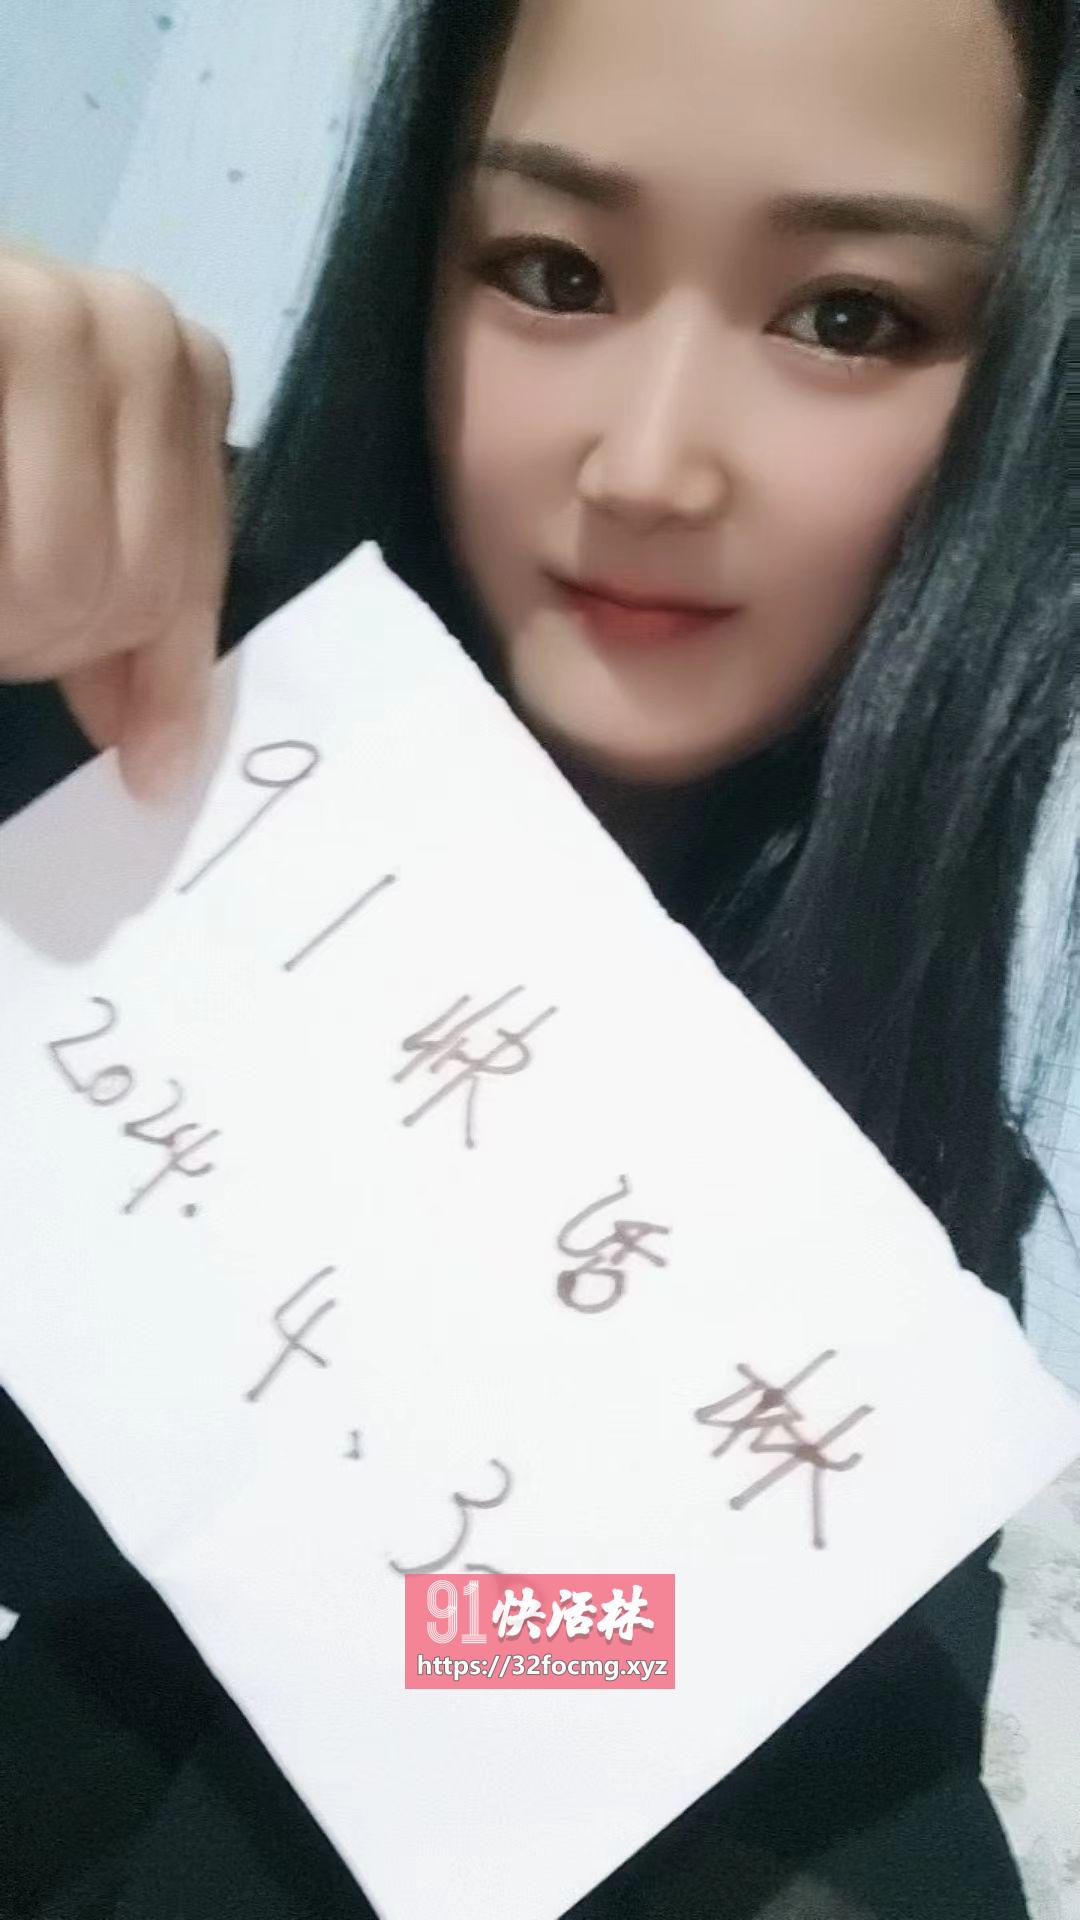 91快活林
2024.4.3
91快活林
https://32focmg.xyz